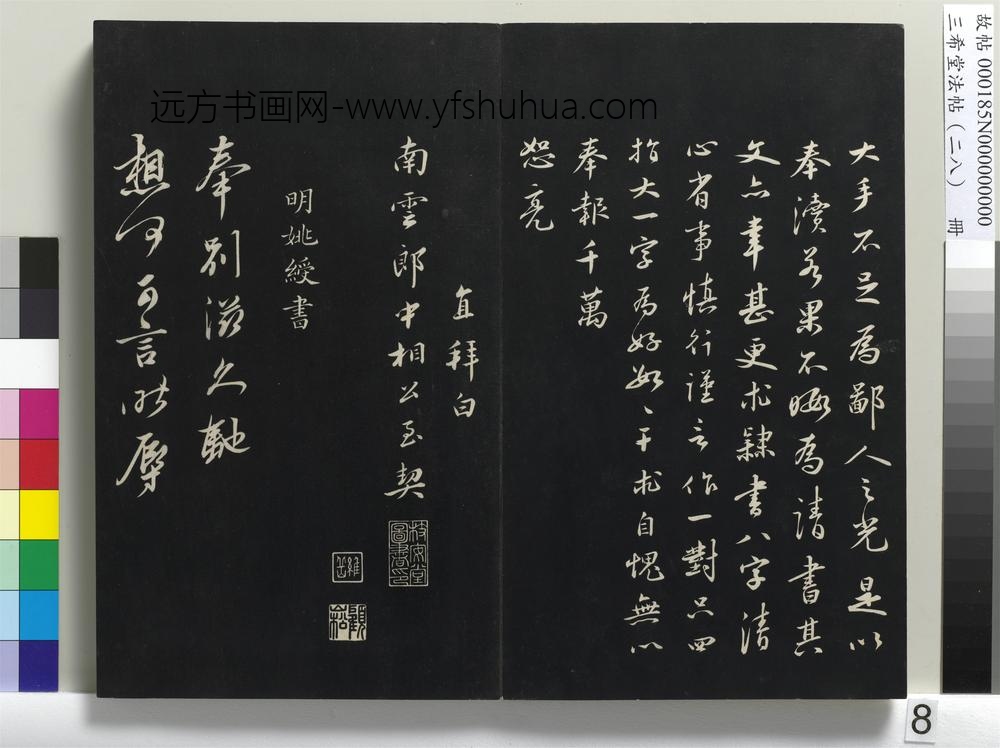 大手不足為鄙人之光是以
奉瀆若果不晦為請書其
文亦幸甚更求隸書八字清
心省事慎行謹言作一對只四
指大一字為好如〻干求自愧無以
奉報千萬
恕亮
直拜白
南雲郎中相公至契
明姚綬書
奉別滋久馳
想何可言昨辱
远方书画网-www.yfshuhua.com
故帖 000185N000000000
三希堂法帖（二八） 冊
8